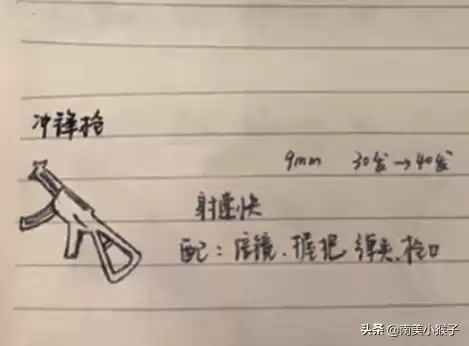 冲锋枪
9mm 30发→40发
射速快
配:倍镜、握把、弹夹、枪口
头条 @南美小猴子